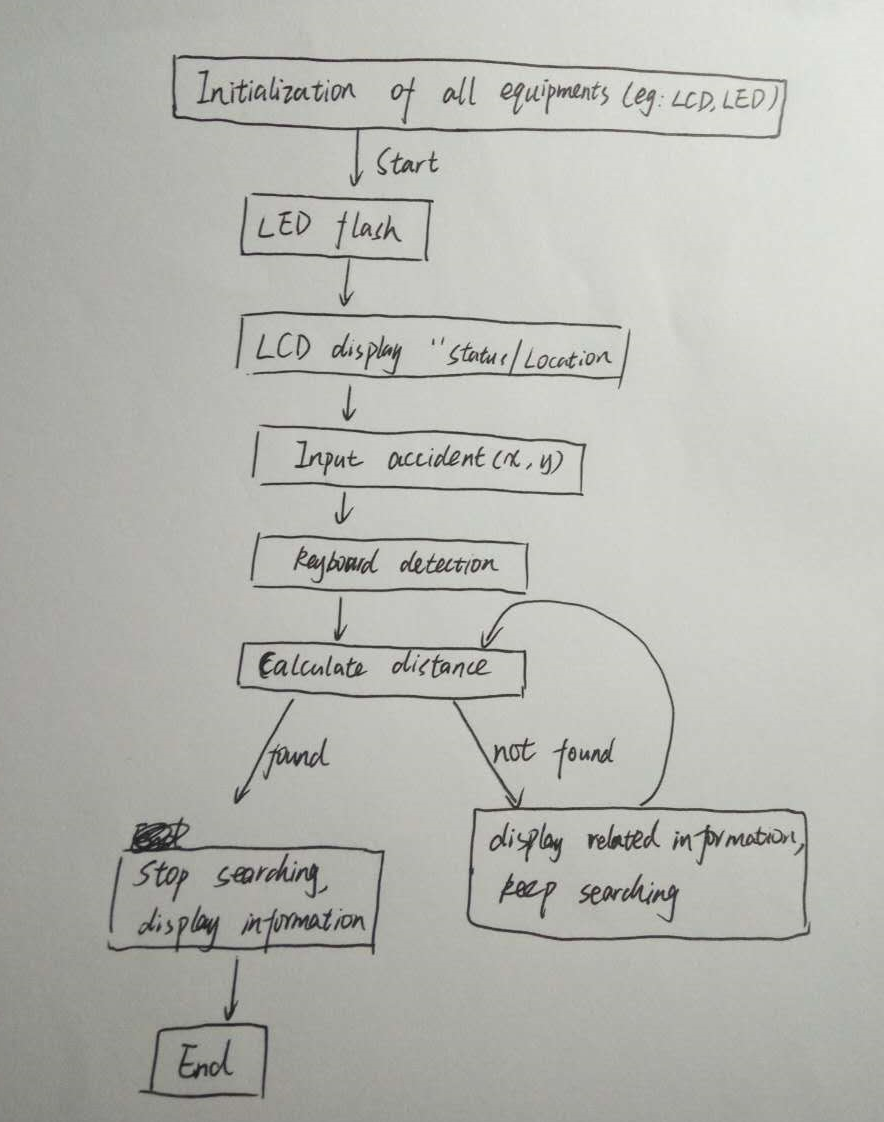 Initialization of all equipments (eg: LCD, LED)
Start
LED flash
LCD display "Status/Location
Input accident (x, y)
keyboard detection
Calculate distance
found
not found
Stop searching,
display information
display related information,
keep searching
End